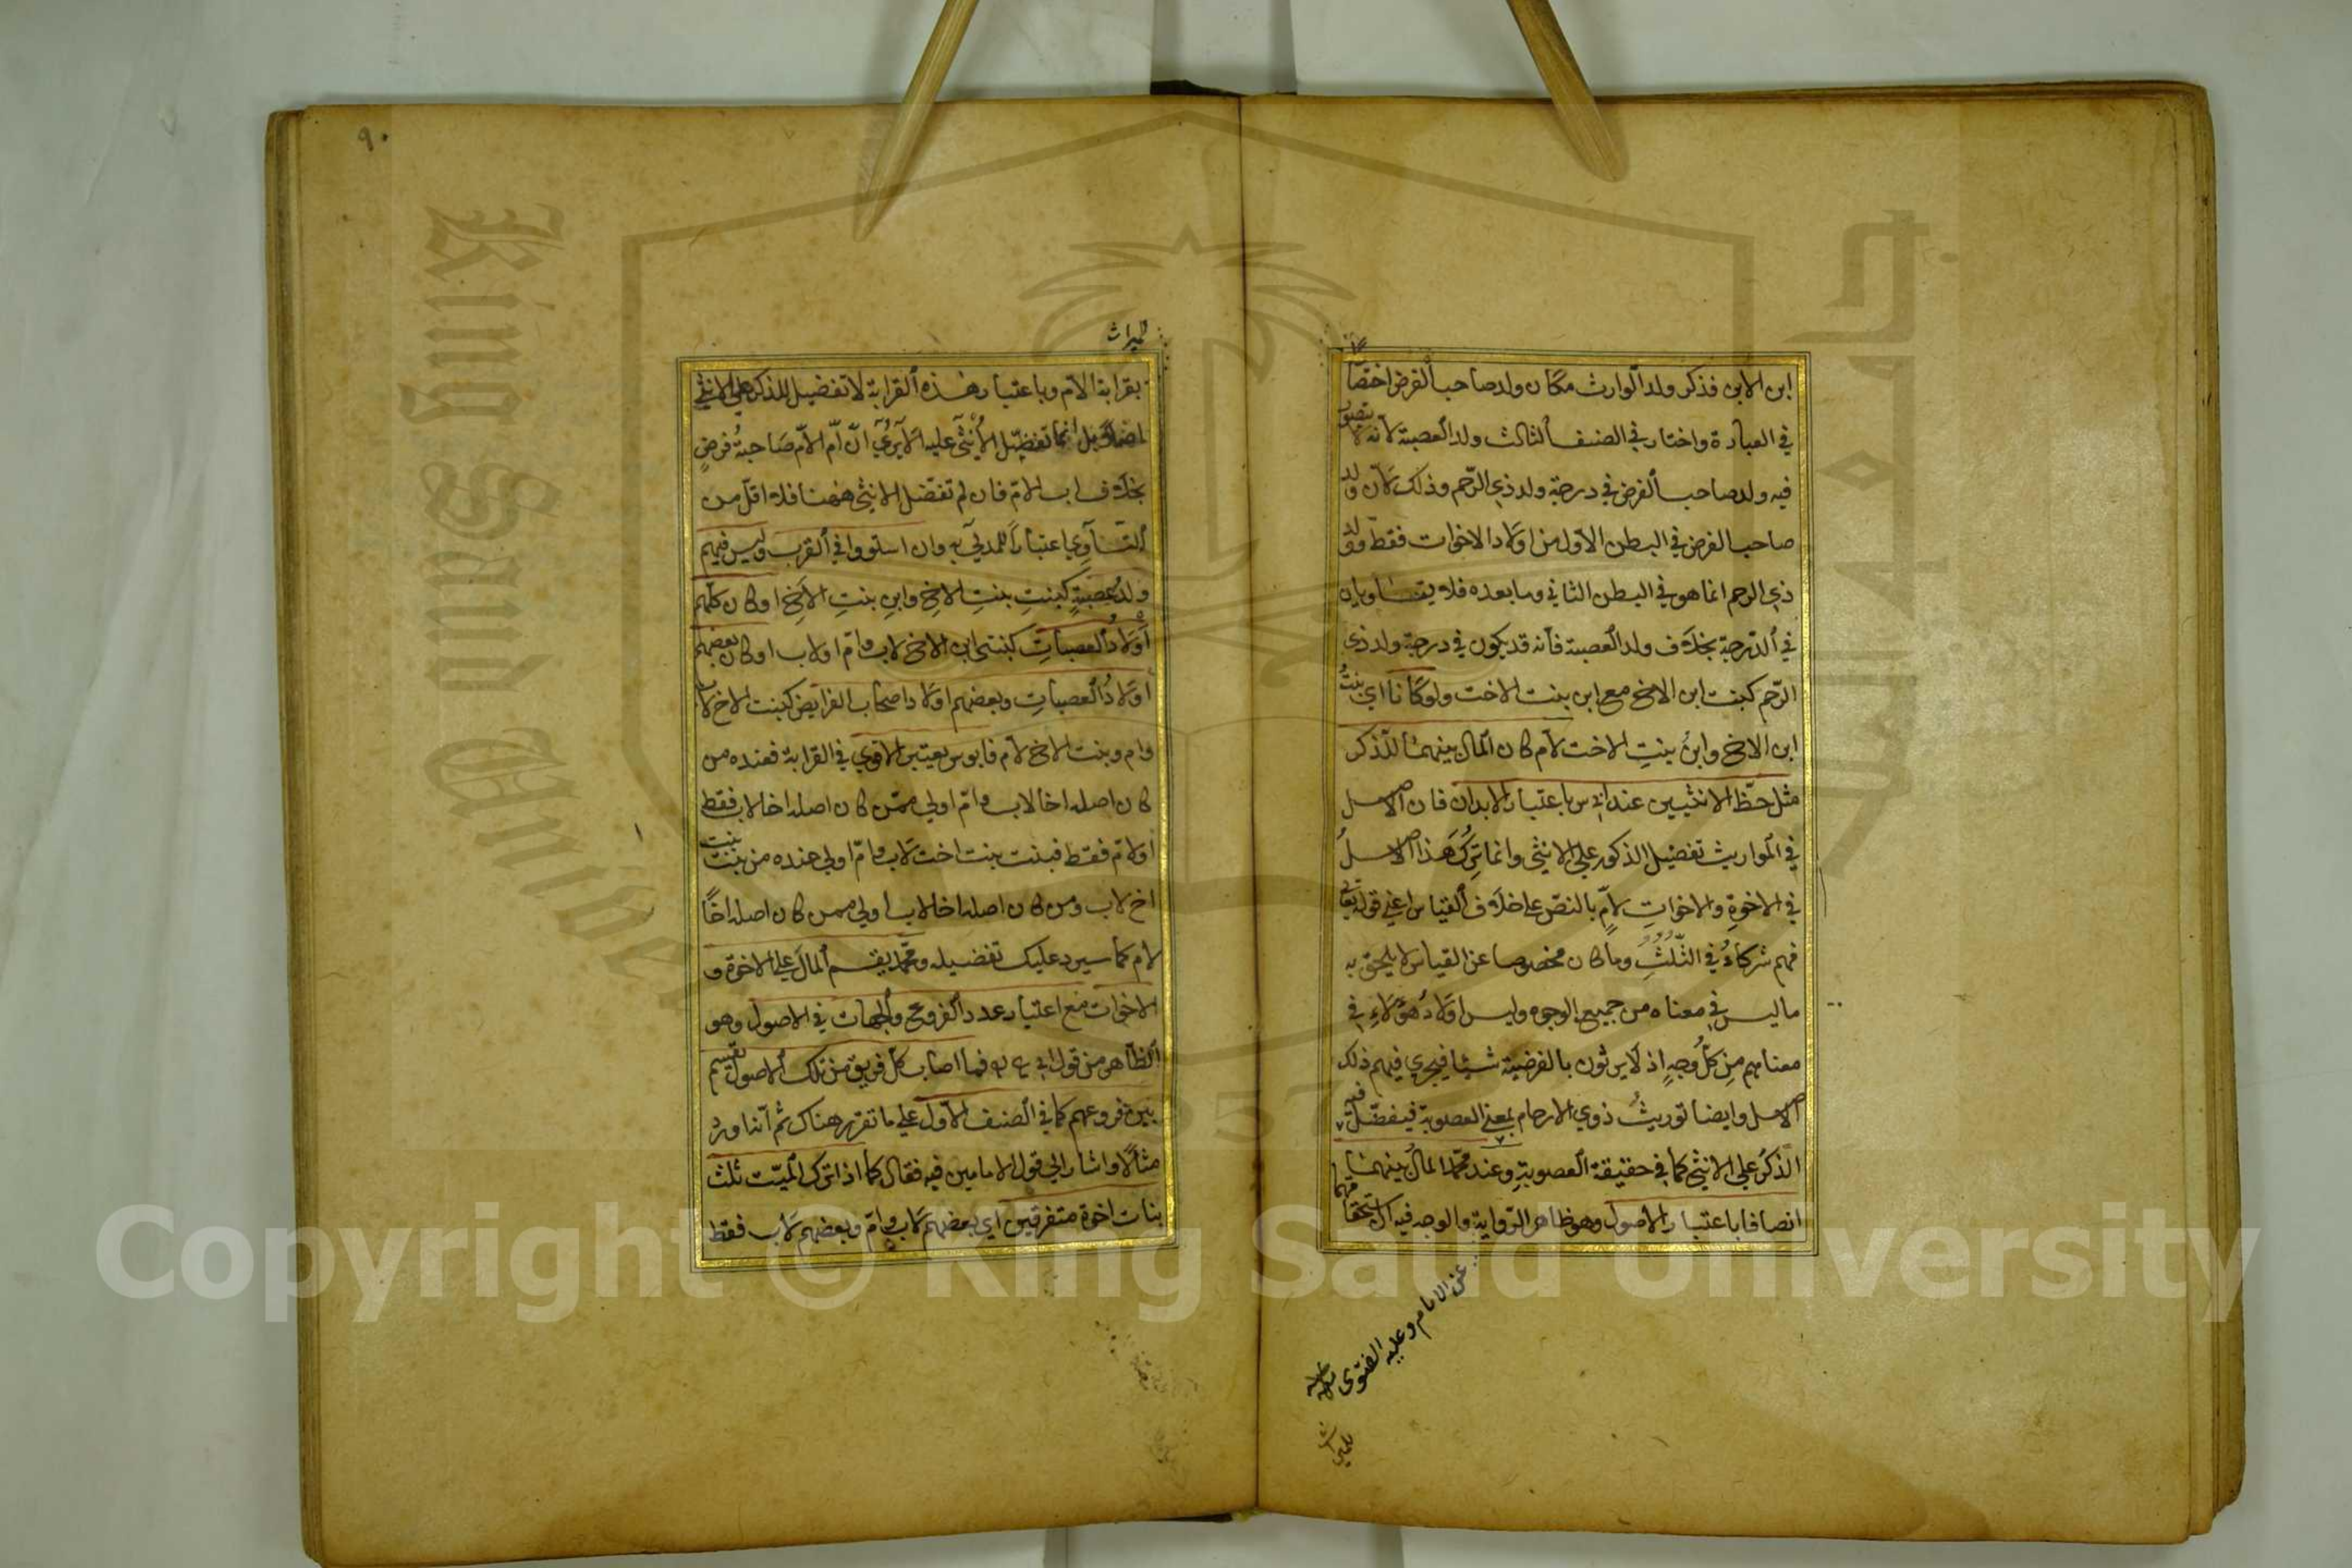 ابن الابن فذكر ولد الوارث مكان ولد صاحب الفرض اختصارا
في العبارة واختار في الصنف الثالث ولد العصبة لانه لا يتصور
فيه ولد صاحب الفرض في درجة ولد ذي الرحم وذلك لان ولد
صاحب الفرض في البطن الاول من اولاد الاخوات فقط وولد
ذي الرحم انما هو في البطن الثاني وما بعده فلا يتساويان
في الدرجة بخلاف ولد العصبة فانه قد يكون في درجة ولد ذي
الرحم كبنت ابن الاخ مع ابن بنت الاخت ولو كانا اي بنت
ابن الاخ وابن بنت الاخت لام كان المال بينهما للذكر
مثل حظ الانثيين عند ابي س باعتبار الابدان فان الاصل
في المواريث تفضيل الذكور على الانثى وانما ترك هذا الاصل
في الاخوة والاخوات لام بالنص على خلاف القياس اعني قوله تعالى
فهم شركاء في الثلث وما كان مخصوصا عن القياس لا يلحق به
ما ليس في معناه من جميع الوجوه وليس اولاد هؤلاء في
معناهم من كل وجه اذ لا يرثون بالفرضية شيئا فيجري فيهم ذلك
الاصل وايضا توريث ذوي الارحام بمعنى العصوبة فيفضل فيه
الذكر على الانثى كما في حقيقة العصوبة وعند محمد المال بينهما
انصافا باعتبار الاصول وهو ظاهر الرواية والوجه فيه ان استحقاقهما
عن الامام وعليه الفتوى
للميراث
٩٠
للميراث
بقرابة الام وباعتبار هذه القرابة لا تفضيل للذكر على الانثى
اصلا بل انما تفضيل الانثى عليه الا يرى ان ام الام صاحبة فرض
بخلاف اب الام فان لم تفضل الانثى ههنا فلا اقل من
التساوي اعتبارا للمدلي به وان استووا في القرب وليس فيهم
ولد عصبة كبنت بنت الاخ وابن بنت الاخ او كان كلهم
اولاد العصبات كبنتي ابن الاخ لاب وام او لاب او كان بعضهم
اولاد العصبات وبعضهم اولاد اصحاب الفرايض كبنت الاخ لاب
وام وبنت الاخ لام فابو س يعتبر الاقوي في القرابة فعنده من
كان اصله اخا لاب وام اولي ممن كان اصله اخا لاب فقط
او لام فقط فبنت بنت اخت لاب وام اولي عنده من بنت بنت
اخ لاب ومن كان اصله اخا لاب اولي ممن كان اصله اخا
لام كما سيرد عليك تفضيله ومحمد يقسم المال على الاخوة و
الاخوات مع اعتبار عدد الفروع والجهات في الاصول وهو
الظاهر من قول ابي فما اصاب كل فريق من تلك الاصول تقسيم
بين فروعهم كما في الصنف الاول على ما تقرر هناك ثم انه اورد
مثالا واشار الى قول الامامين فيه فقال كما اذا ترك الميت ثلث
بنات اخوة متفرقين اي بعضهم لاب وام وبعضهم لاب فقط
King Saud University
1957
Copyright © King Saud University